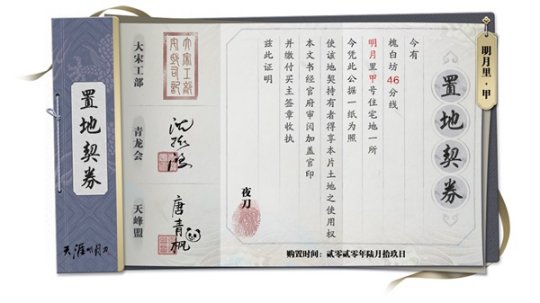 明月里·甲
置地契券
今有
槐白坊46分线
明月里甲号住宅地一所
今凭此公据一纸为照
使该地契持有者得享本片土地之使用权
本文书经官府审阅加盖官印
并缴付买主签章收执
兹此证明
夜刀
购置时间:贰零贰零年陆月拾玖日
大宋工部
青龙会
天峰盟
唐青枫
置地契券
天涯明月刀